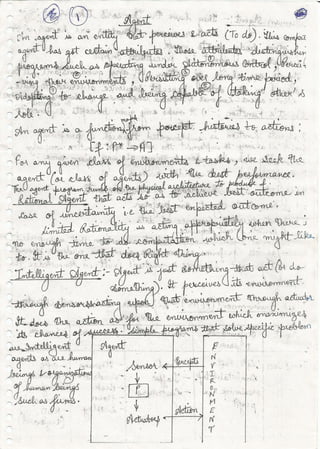 1
Agent
An agent is an entity that perceives & acts (To do). This
agent has got certain attributes. These attributes distinguishes
programs such as operating under autonomous control, Percei
ving their environments, (Persisting) over long time period,
adapting to change and being capable of (taking) other's
role.
An agent is a function from percept histories to actions:
[f: P* → A]
For any given class of environments & tasks, we seek the
agent (or class of agents) with the best performance.
The agent program runs on the physical architecture to produce f.
Rational Agent that acts so as to achieve best outcome in
case of uncertainity i.e the best expected outcome.
Limited Rationality is acting appropriately when there is
no enough time to do computation which one might like
to. It is the one that does Right thing.
Intelligent Agent:- Agent is just something that act (or do
something). It perceives its environment
through sensors & acting upon that environment through actuator
It does the action as for the environment which maximizes
its chances of success. Simple programs that solve specific problem
are Intelligent
agents as are human
beings & organization
of human beings
such as firms.
Agent
Sensor
P
Actuators
Percepts
Action
ENVIRENMENT